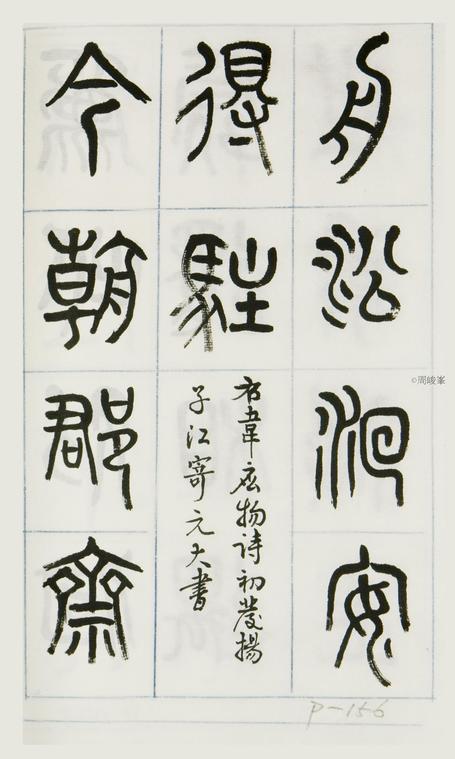 舟沿洄安
得駐
右韋應物詩初發揚
子江寄元大書
今朝郡齋
©周峻峯
P-156